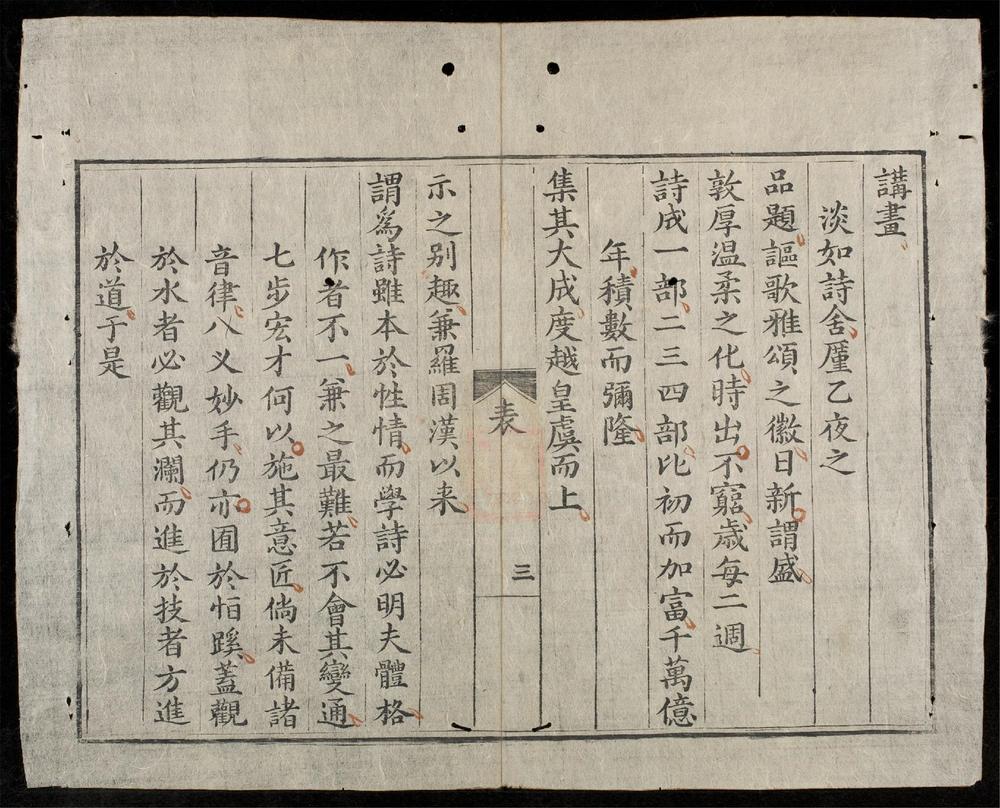 講晝
淡如詩舍厪乙夜之
品題謳歌雅頌之徽日新謂盛
敦厚温柔之化時出不窮歲每二週
詩成一部二三四部比初而加富千萬億
年積數而彌隆
集其大成度越皇虞而上
表
三
示之别趣兼羅周漢以来
謂爲詩雖本於性情而學詩必明夫體格
作者不一兼之最難若不會其變通
七步宏才何以施其意匠倘未備諸
音律八乂妙手仍亦囿於恒蹊蓋觀
於水者必觀其瀾而進於技者方進
於道于是